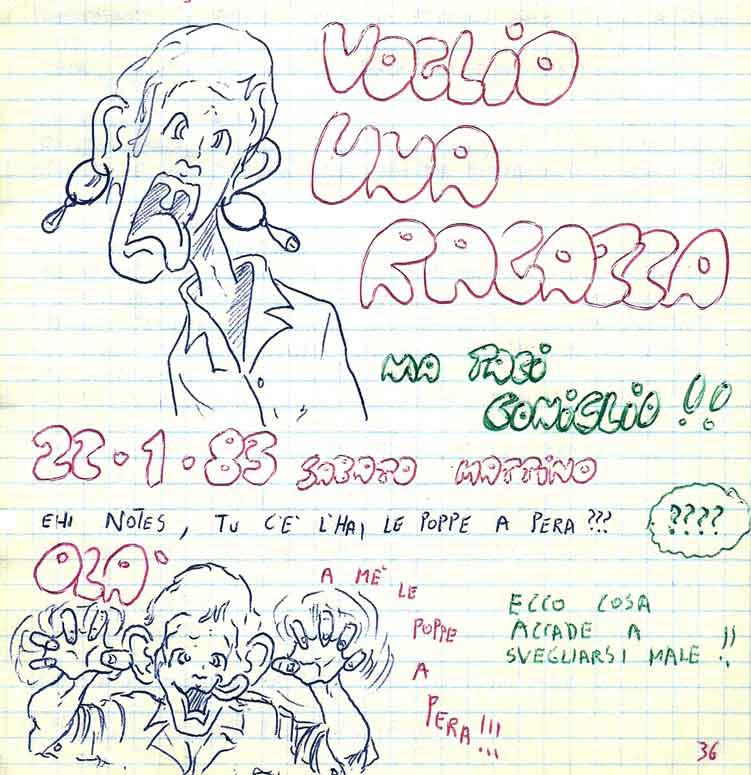 VOGLIO
UNA
RAGAZZA
MA TACI
CONIGLIO!!
22·1·83 SABATO MATTINO
EHI NOTES, TU C'E' L'HAI LE POPPE A PERA???
????
OLA'
A ME' LE
POPPE
A
PERA!!!
ECCO COSA
ACCADE A
SVEGLIARSI MALE!!
36